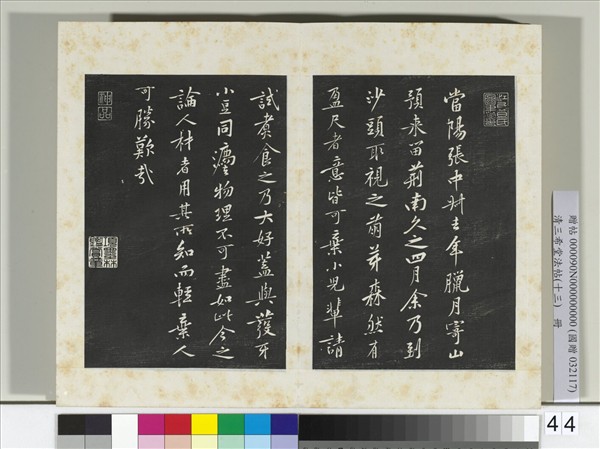 當陽張中叔去年臘月寄山
預來留荊南久之四月余乃到
沙頭取視之萌芽森然有
盈尺者意皆可棄小兒輩請
試煮食之乃大好蓋與發牙
小豆同
物理不可盡如此今之
論人材者用其所知而輕棄人
可勝歎哉
神品
贈帖 000090N000000000 (國贈 032117)
清三希堂法帖(十三) 冊
44